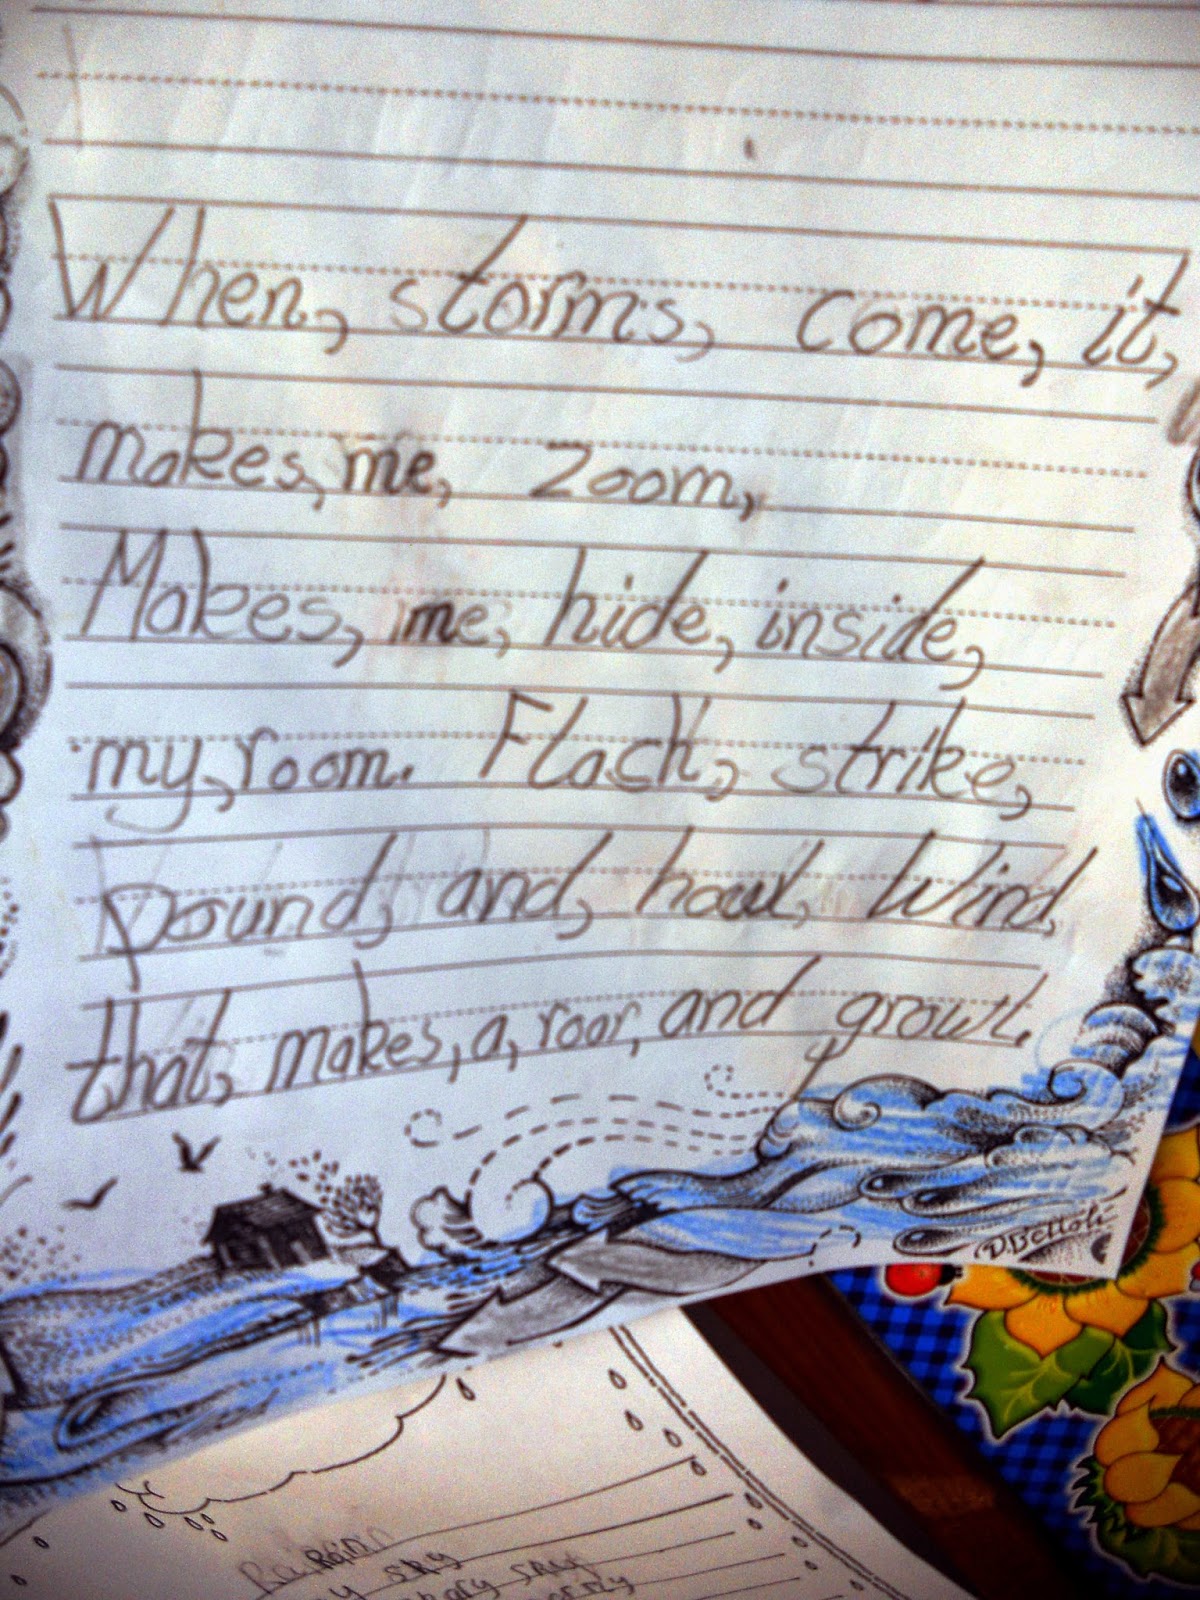 When, storms, come, it,
makes, me, zoom,
Makes, me, hide, inside,
my, room. Flach, strike,
pound, and, howl, Wind,
that, makes, a, roar, and growl.
D. Bettoli
Rain
sky